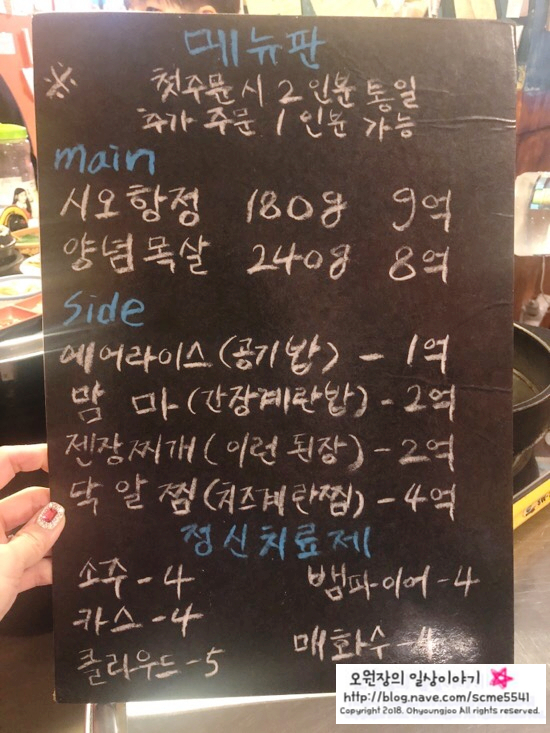 메뉴판
※ 첫주문시 2인분 통일
추가 주문 1인분 가능
main
시오항정 180g 9억
양념목살 240g 8억
side
에어라이스(공기밥) - 1억
맘 마(간장계란밥) - 2억
젠장찌개(이런 된장) - 2억
닥 알 찜(치즈계란찜) - 4억
정신치료제
소주 - 4 뱀파이어 - 4
카스 - 4
클라우드 - 5 매화수 - 4
오원장의 일상이야기
http://blog.nave.com/scme5541
Copyright 2018. Ohyoungjoo All rights reserved.